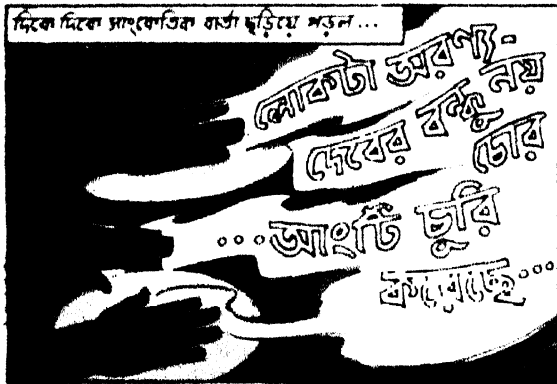 দিকে দিকে সাংকেতিক বার্তা ছড়িয়ে পড়ল...
লোকটা অরণ্য-
দেবের বন্ধু নয়
চোর
...আংটি চুরি
করেছে...